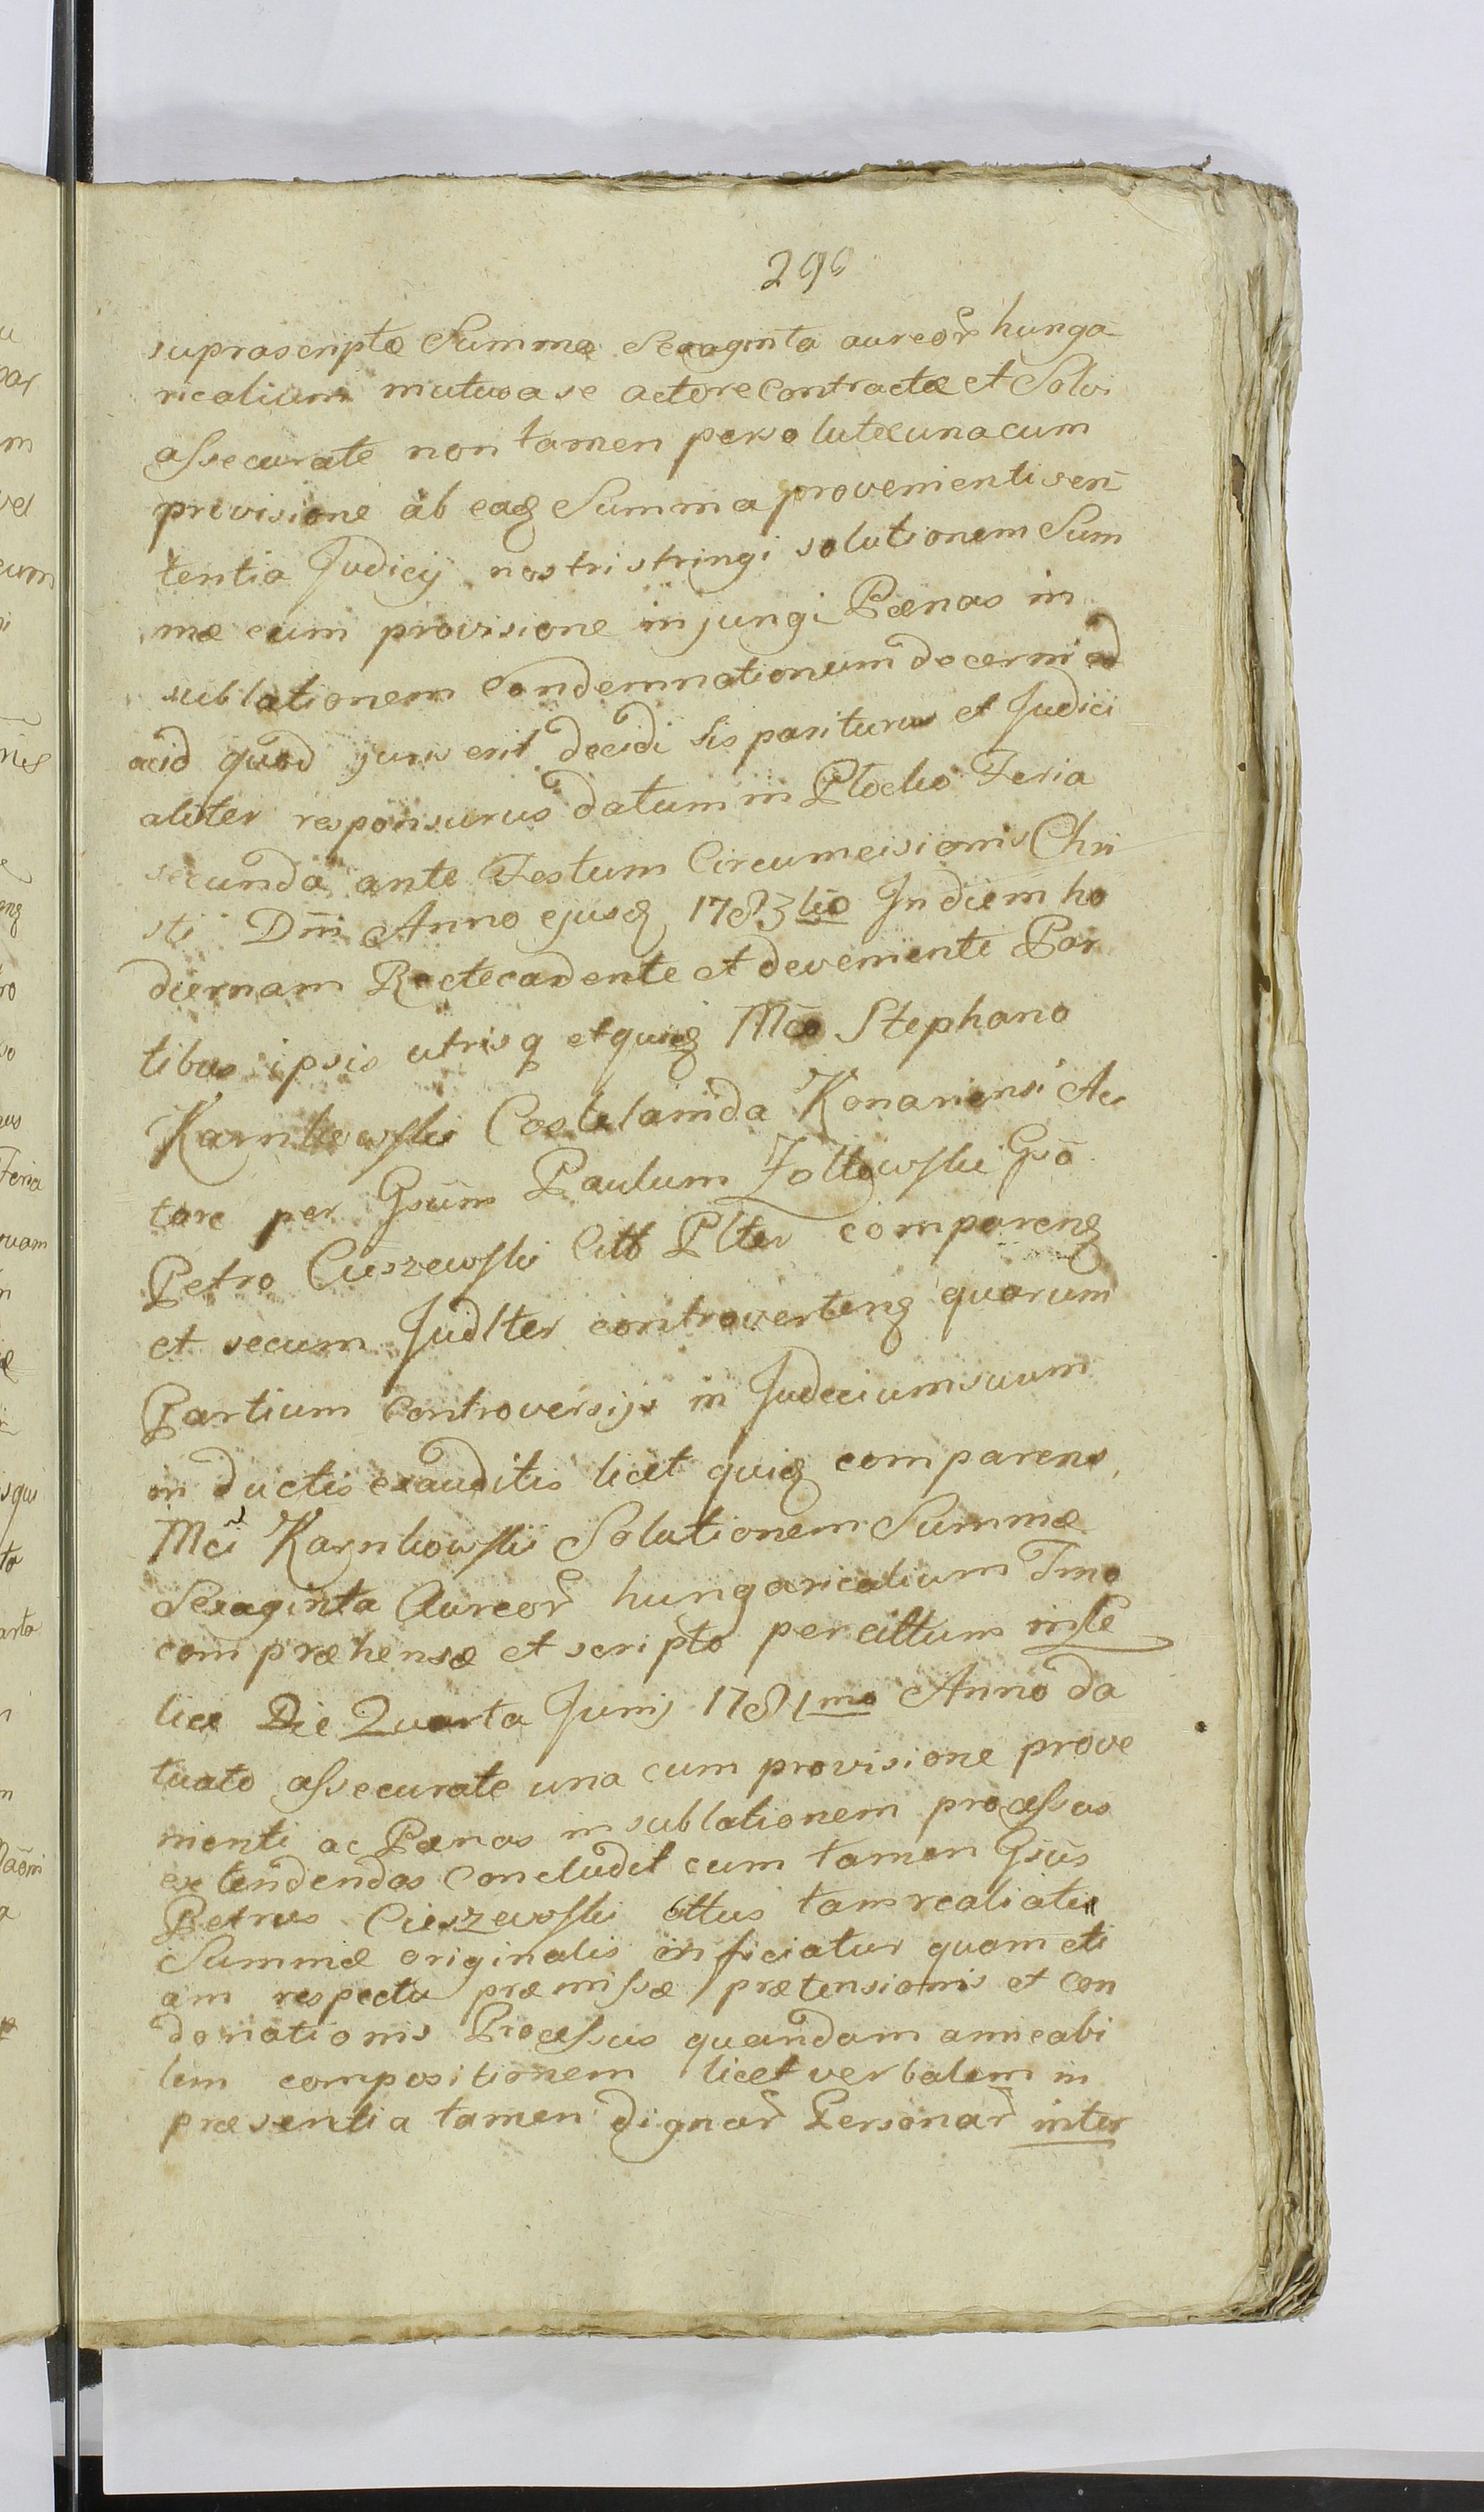 290
suprascriptæ Summæ Sexaginta aureor̃ hunga
ricalium mutuo a se actore Contractæ et Solvi
assecuratæ non tamen persolutæ una cum
provisione ab eaq̃ Summa provenienti sen̄
tentia Judicij nostri stringi solutionem Sum
mæ cum provisione injungi Pænas in
sublationem Condemnationum decerni ad
acid quod juris erit decidi sis pariturus et Judici
aliter responsurus datum in Plocko Feria
secunda ante Festum Circumcisionis Chri
sti Dñi Anno ejusq̃ 1783tio In diem ho
diernam Recte cadente et deveniente Par
tibus ipsis utrisq̃ et quiq̃ Mco Stephano
Karnkowski Castelanida Konariensi Ac
tore per Gsum Paulum Zoltowski Gso
Petro Cieszewski Citt Plter comparenq̃
et secum Judlter controvertenq̃ quarum
Partium Controversijs in Judicium suum
in ductis exauditis licet quiq̃ comparens
Mci Karnkowski Solutionem Summæ
Sexaginta Aureor̃ hungaricalium Tmo
comprehensæ et scripto per cittum in Se
lice Die Quarta Junij 1781mo Anno da
tuato assecuratæ una cum provisione prove
nienti ac Pænas in sublationem processus
extendendas Concludit cum tamen Gsus
Petrus Cieszewski cittus tam realiatem
Summæ originalis inficiatur quam eti
am respectu præmissæ prætensionis et Con
donationis Processus quandam amicabi
lem compositionem licet verbalem in
præsentia tamen dignar̃ Personar̃ inter